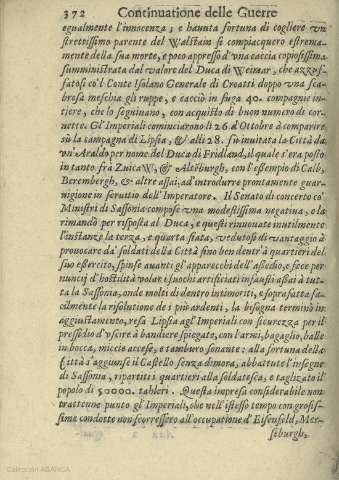 372 Continuatione delle Guerre
egualmente l'innocenza; e hauuta fortuna di cogliere vn
strettissimo parente del Walstain si compiacquero estrema-
mente della sua morte, e poco appresso d'vna caccia copiosissima
sumministrata dal valore del Duca di Weimar, che azzuf-
fatosi co'l Conte Isolano Generale di Croatti doppo vna sca-
brosa meschia gli ruppe, e cacciò in fuga 40. compagnie in-
tiere, che lo seguiuano, con acquisto di buon numero di cor-
nette. Gl'Imperiali cominciarono li 26 d'Ottobre à comparire
sù la campagna di Lipsia, & alli 28. fù inuitata la Città da
vn'Araldo per nome del Duca di Fridland, il quale s'era posto
in tanto frà Zuica W, & Altëburgh, con l'essempio di Calb,
Berembergh, & altre assai, ad introdurre prontamente guar-
nigione in seruitio dell'Imperatore. Il Senato di concerto co'
Ministri di Sassonia compose vna modestissima negatiua, e la
rimandò per risposta al Duca, e questi rinouate inutilmente
l'instanze la terza, e quarta fiata, vedutosi di vantaggio à
prouocare da' soldati della Città sino ben dentr'à quartieri del
suo essercito, spinse auanti gl'apparecchi dell'assedio, e fece per
nuncij d'hostilità volar i fuochi artificiati infausti assai à tutta
la Sassonia, onde molti di dentro intimoriti, e soprafatta fa-
cilmente la risolutione de i più ardenti, la bisogna terminò in
aggiustamento, resa Lipsia agl'Imperiali con sicurezza per il
pressidio d'vscire à bandiere spiegate, con l'armi, bagaglio, balle
in bocca, miccie accese, e tamburo sonante: alla fortuna della
Città s'aggiunse il Castello senza dimora, abbattute l'insegne
di Sassonia, ripartiti quartieri alla soldatesca, e taglizato il
popolo di 50000. talleri. Questa impresa considerabile non
trattenne punto gl'Imperiali, che nell'istesso tempo con grosis-
sime condotte non scorressero all'occupatione d'Eisenfeld, Mer-
siburgh,
Colección ABANCA